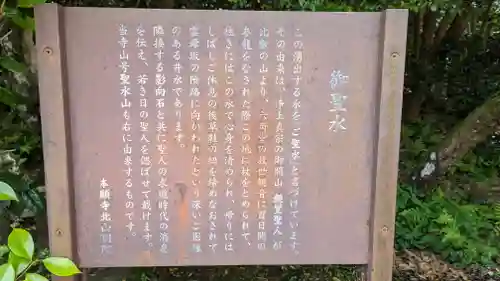 御聖水
この湧出する水を「ご聖水」と名づけています。
その由来は、浄土真宗の御開山 親鸞聖人が
比叡の山より、六角堂の救世観音に百日間の
参籠をなされた際この地に杖をとめられて、
往きにはこの水で心身を清められ、帰りには
しばしご休息の後草鞋の紐を締めなおされて
雲母坂の険路に向かわれたという深いご因縁
のある井水であります。
隣接する影向石と共に聖人の求道時代の消息
を伝え、若き日の聖人を偲ばせて戴けます。
当寺山号聖水山も右に由来するものです。
本願寺北山別院